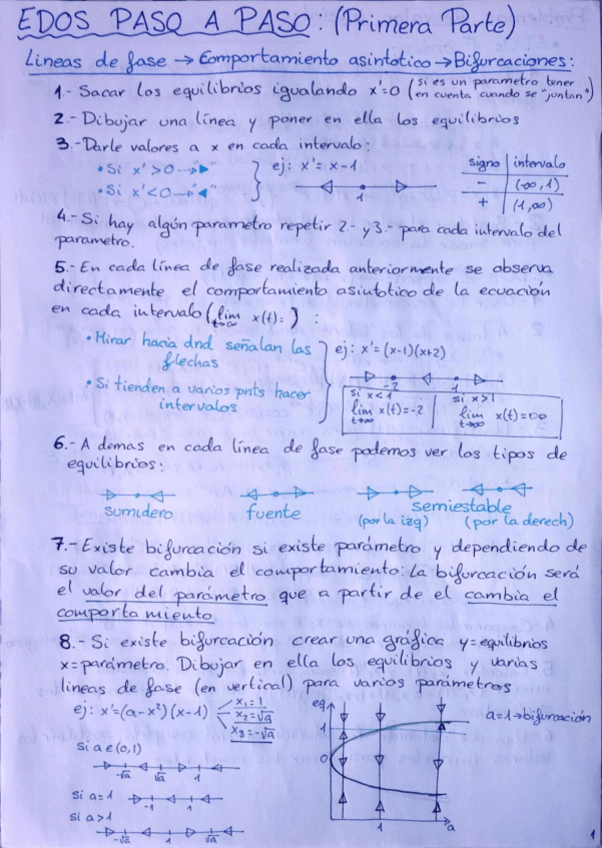 EDOS PASO A PASO: (Primera Parte)
Lineas de fase → Comportamiento asintotico → Bifurcaciones:
1.- Sacar los equilibrios igualando x'=0 (si es un parametro tener
en cuenta cuando se "juntan")
2.- Dibujar una línea y poner en ella los equilibrios
3.- Darle valores a x en cada intervalo:
• Si x'>0 → "▶"
• Si x'<0 → "◀"
ej: x'= x-1
1
signo | intervalo
- | (-∞,1)
+ | (1,∞)
4.- Si hay algún parametro repetir 2.- y 3.- para cada intervalo del
parametro.
5.- En cada línea de fase realizada anteriormente se observa
directamente el comportamiento asintotico de la ecuación
en cada intervalo (lim x(t)= ) :
t→∞
• Mirar hacia dnd señalan las
flechas
• Si tienden a varios pnts hacer
intervalos
ej: x'=(x-1)(x+2)
-2 1
si x<1 | si x>1
lim x(t)=-2 | lim x(t)=∞
t→∞ | t→∞
6.- A demas en cada línea de fase podemos ver los tipos de
equilibrios:
sumidero fuente semiestable
(por la izq) (por la derech)
7.- Existe bifurcación si existe parámetro y dependiendo de
su valor cambia el comportamiento: La bifurcación será
el valor del parámetro que a partir de el cambia el
comporta miento
8.- Si existe bifurcación crear una gráfica y=equilibrios
x=parámetro. Dibujar en ella los equilibrios y varias
lineas de fase (en vertical) para varios parámetros
ej: x'=(a-x²)(x-1)
x₁=1
x₂=√a
x₃=-√a
si a∈(0,1)
-√a √a 1
si a=1
-1 1
si a>1
-√a 1 √a
eq
1
0
1
a
a=1→bifurcación
1